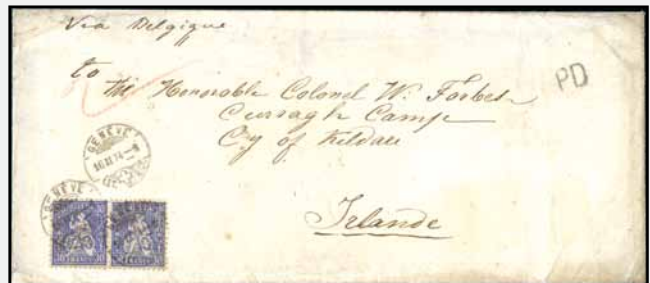 Via Belgique
to
The Honorable Colonel W. Forbes
Curragh Camp
Cy of Kildare
Irlande
PD
GENÈVE
GENÈVE